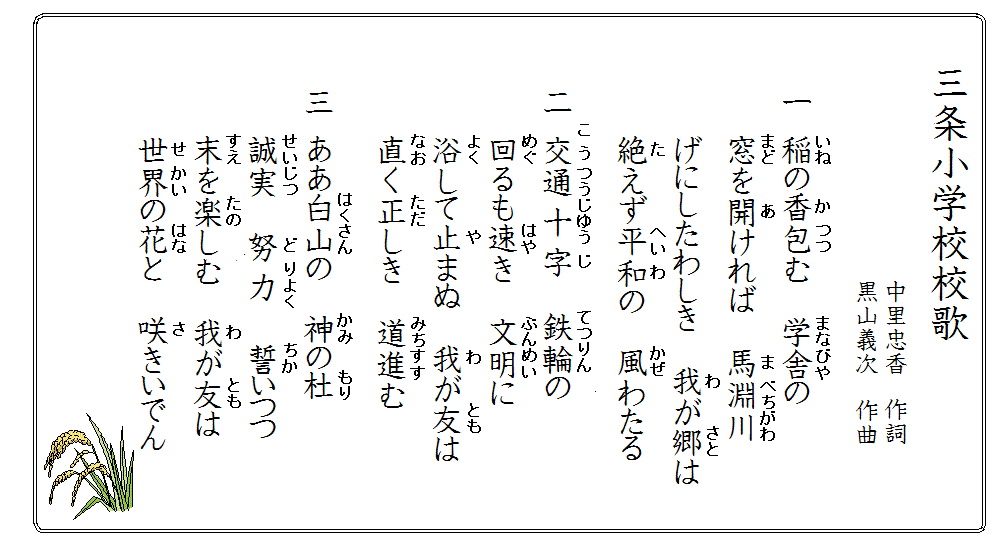 三条小学校校歌
中里忠香 作詞
黒山義次 作曲
一 稲の香包む 学舎の
窓を開ければ 馬淵川
げにしたわしき 我が郷は
絶えず平和の 風わたる
二 交通十字 鉄輪の
回るも速き 文明に
浴して止まぬ 我が友は
直く正しき 道進む
三 ああ白山の 神の杜
誠実 努力 誓いつつ
末を楽しむ 我が友は
世界の花と 咲きいでん